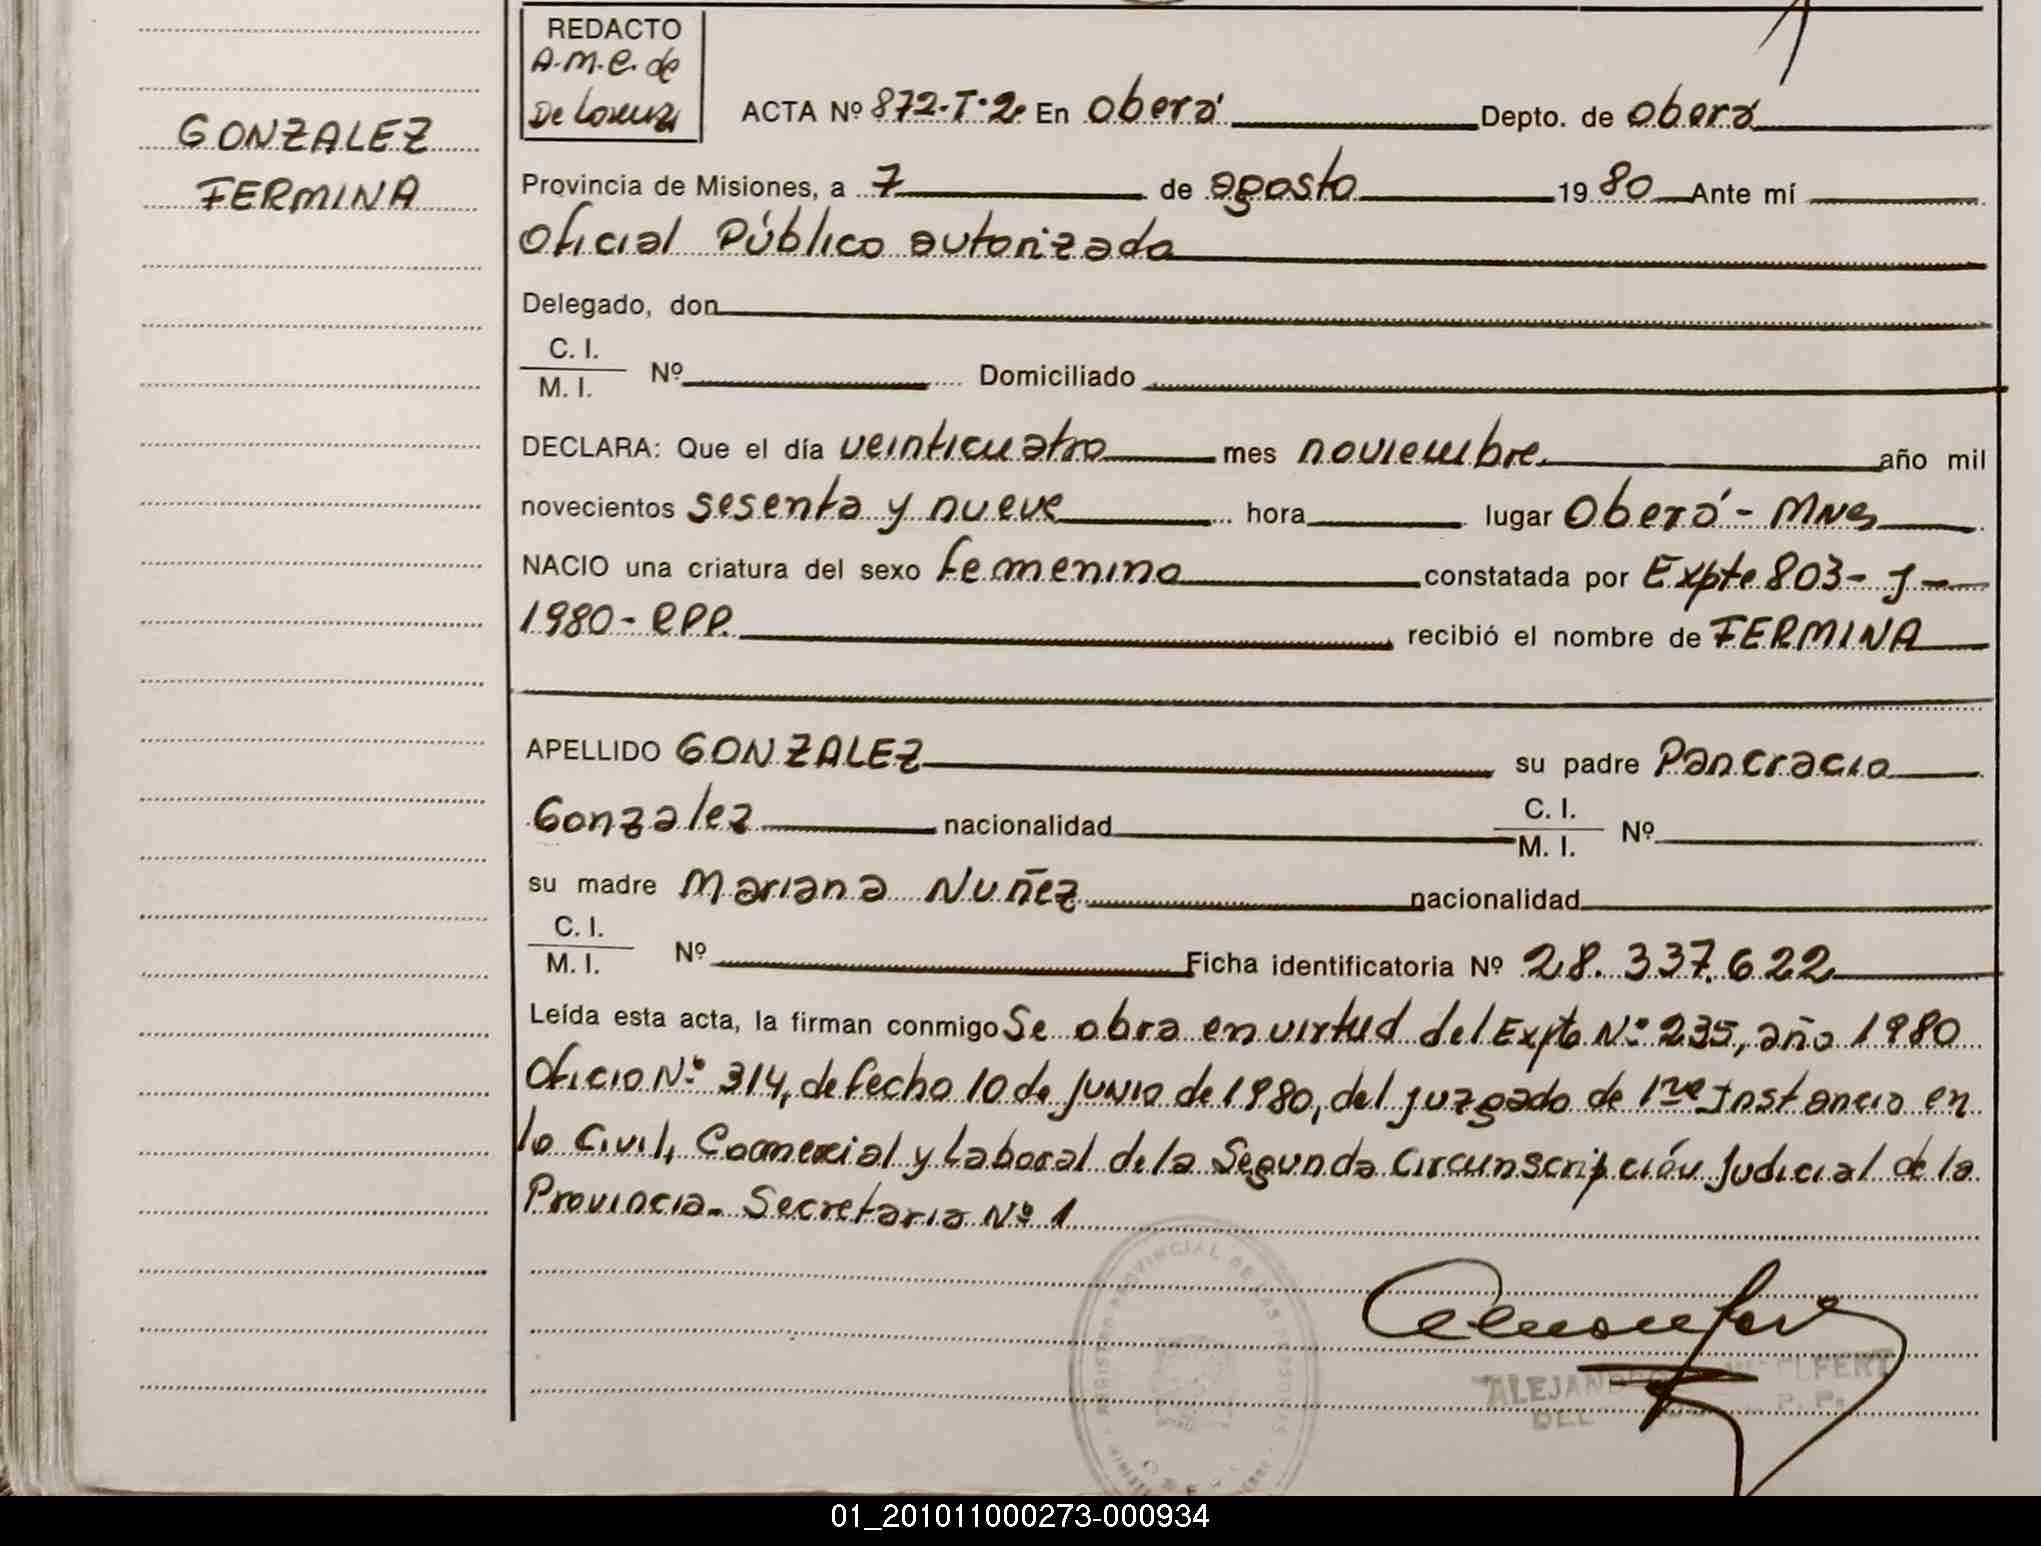 REDACTO
A.M.C. de
De Lorenzi
GONZALEZ
FERMINA
ACTA Nº 872-T-2- En Oberá Depto. de Oberá
Provincia de Misiones, a 7 de agosto 1980 Ante mí
Oficial Público autorizado
Delegado, don
C. I.
M. I. Nº Domiciliado
DECLARA: Que el día veinticuatro mes noviembre año mil
novecientos sesenta y nueve hora lugar Oberá - Mnes
NACIO una criatura del sexo femenino constatada por Expte 803- J -
1980- RPP. recibió el nombre de FERMINA
APELLIDO GONZALEZ su padre Pancracio
Gonzalez nacionalidad C. I. M. I. Nº
su madre Mariana Nuñez nacionalidad
C. I.
M. I. Nº Ficha identificatoria Nº 28.337.622
Leída esta acta, la firman conmigo Se obra en virtud del Expte Nº 235, año 1980
Oficio Nº 314, de fecho 10 de junio de 1980, del juzgado de 1ra Instancia en
lo Civil, Comercial y Laboral de la Segunda Circunscripción Judicial de la
Provincia. Secretaria Nº 1
REGISTRO PROVINCIAL DE LAS PERSONAS
01_201011000273-000934